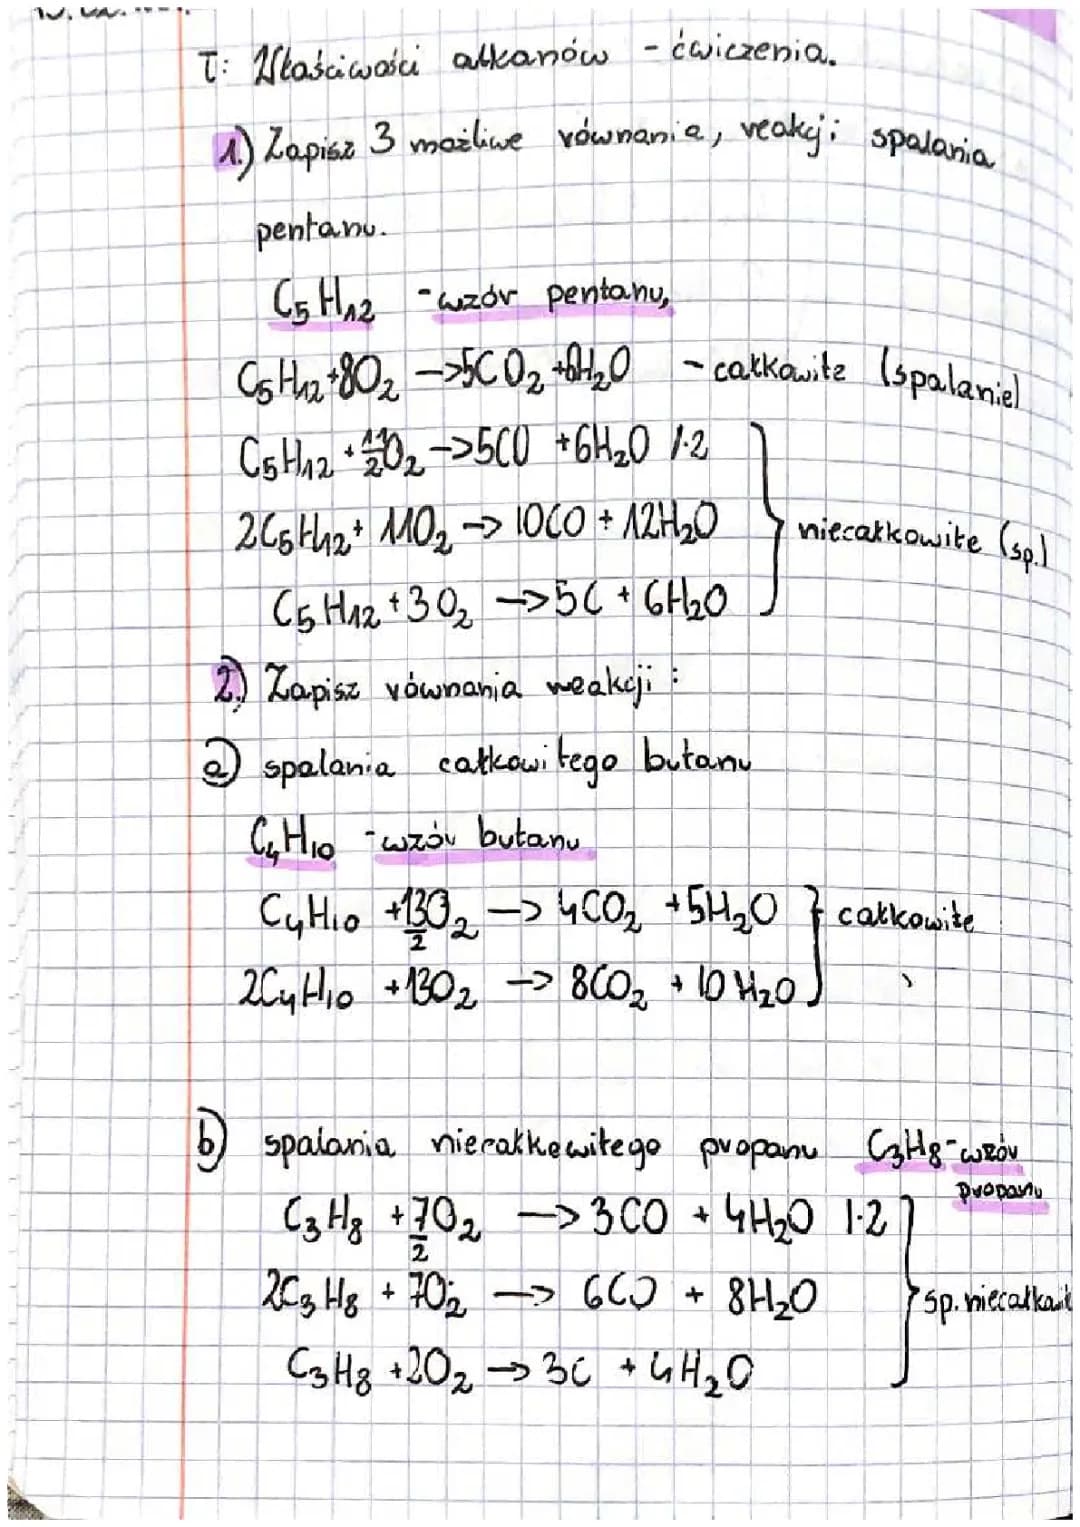 T: Właściwości alkanów - ćwiczenia.
1.) Zapisz 3 możliwe równania, reakcji spalania
pentanu.
C₅H₁₂ - wzór pentanu,
C₅H₁₂ + 8O₂ -> 5CO₂ + 6H₂O - całkowite (spalanie)
C₅H₁₂ + 11/2 O₂ -> 5CO + 6H₂O /·2
2C₅H₁₂ + 11O₂ -> 10CO + 12H₂O
niecałkowite (sp.)
C₅H₁₂ + 3O₂ -> 5C + 6H₂O
2.) Zapisz równania reakcji :
a) spalania całkowitego butanu
C₄H₁₀ - wzór butanu
C₄H₁₀ + 13/2 O₂ -> 4CO₂ + 5H₂O } całkowite
2C₄H₁₀ + 13O₂ -> 8CO₂ + 10H₂O
b) spalania niecałkowitego propanu C₃H₈ - wzór
propanu
C₃H₈ + 7/2 O₂ -> 3CO + 4H₂O /·2
2C₃H₈ + 7O₂ -> 6CO + 8H₂O } sp. niecałkowit
C₃H₈ + 2O₂ -> 3C + 4H₂O